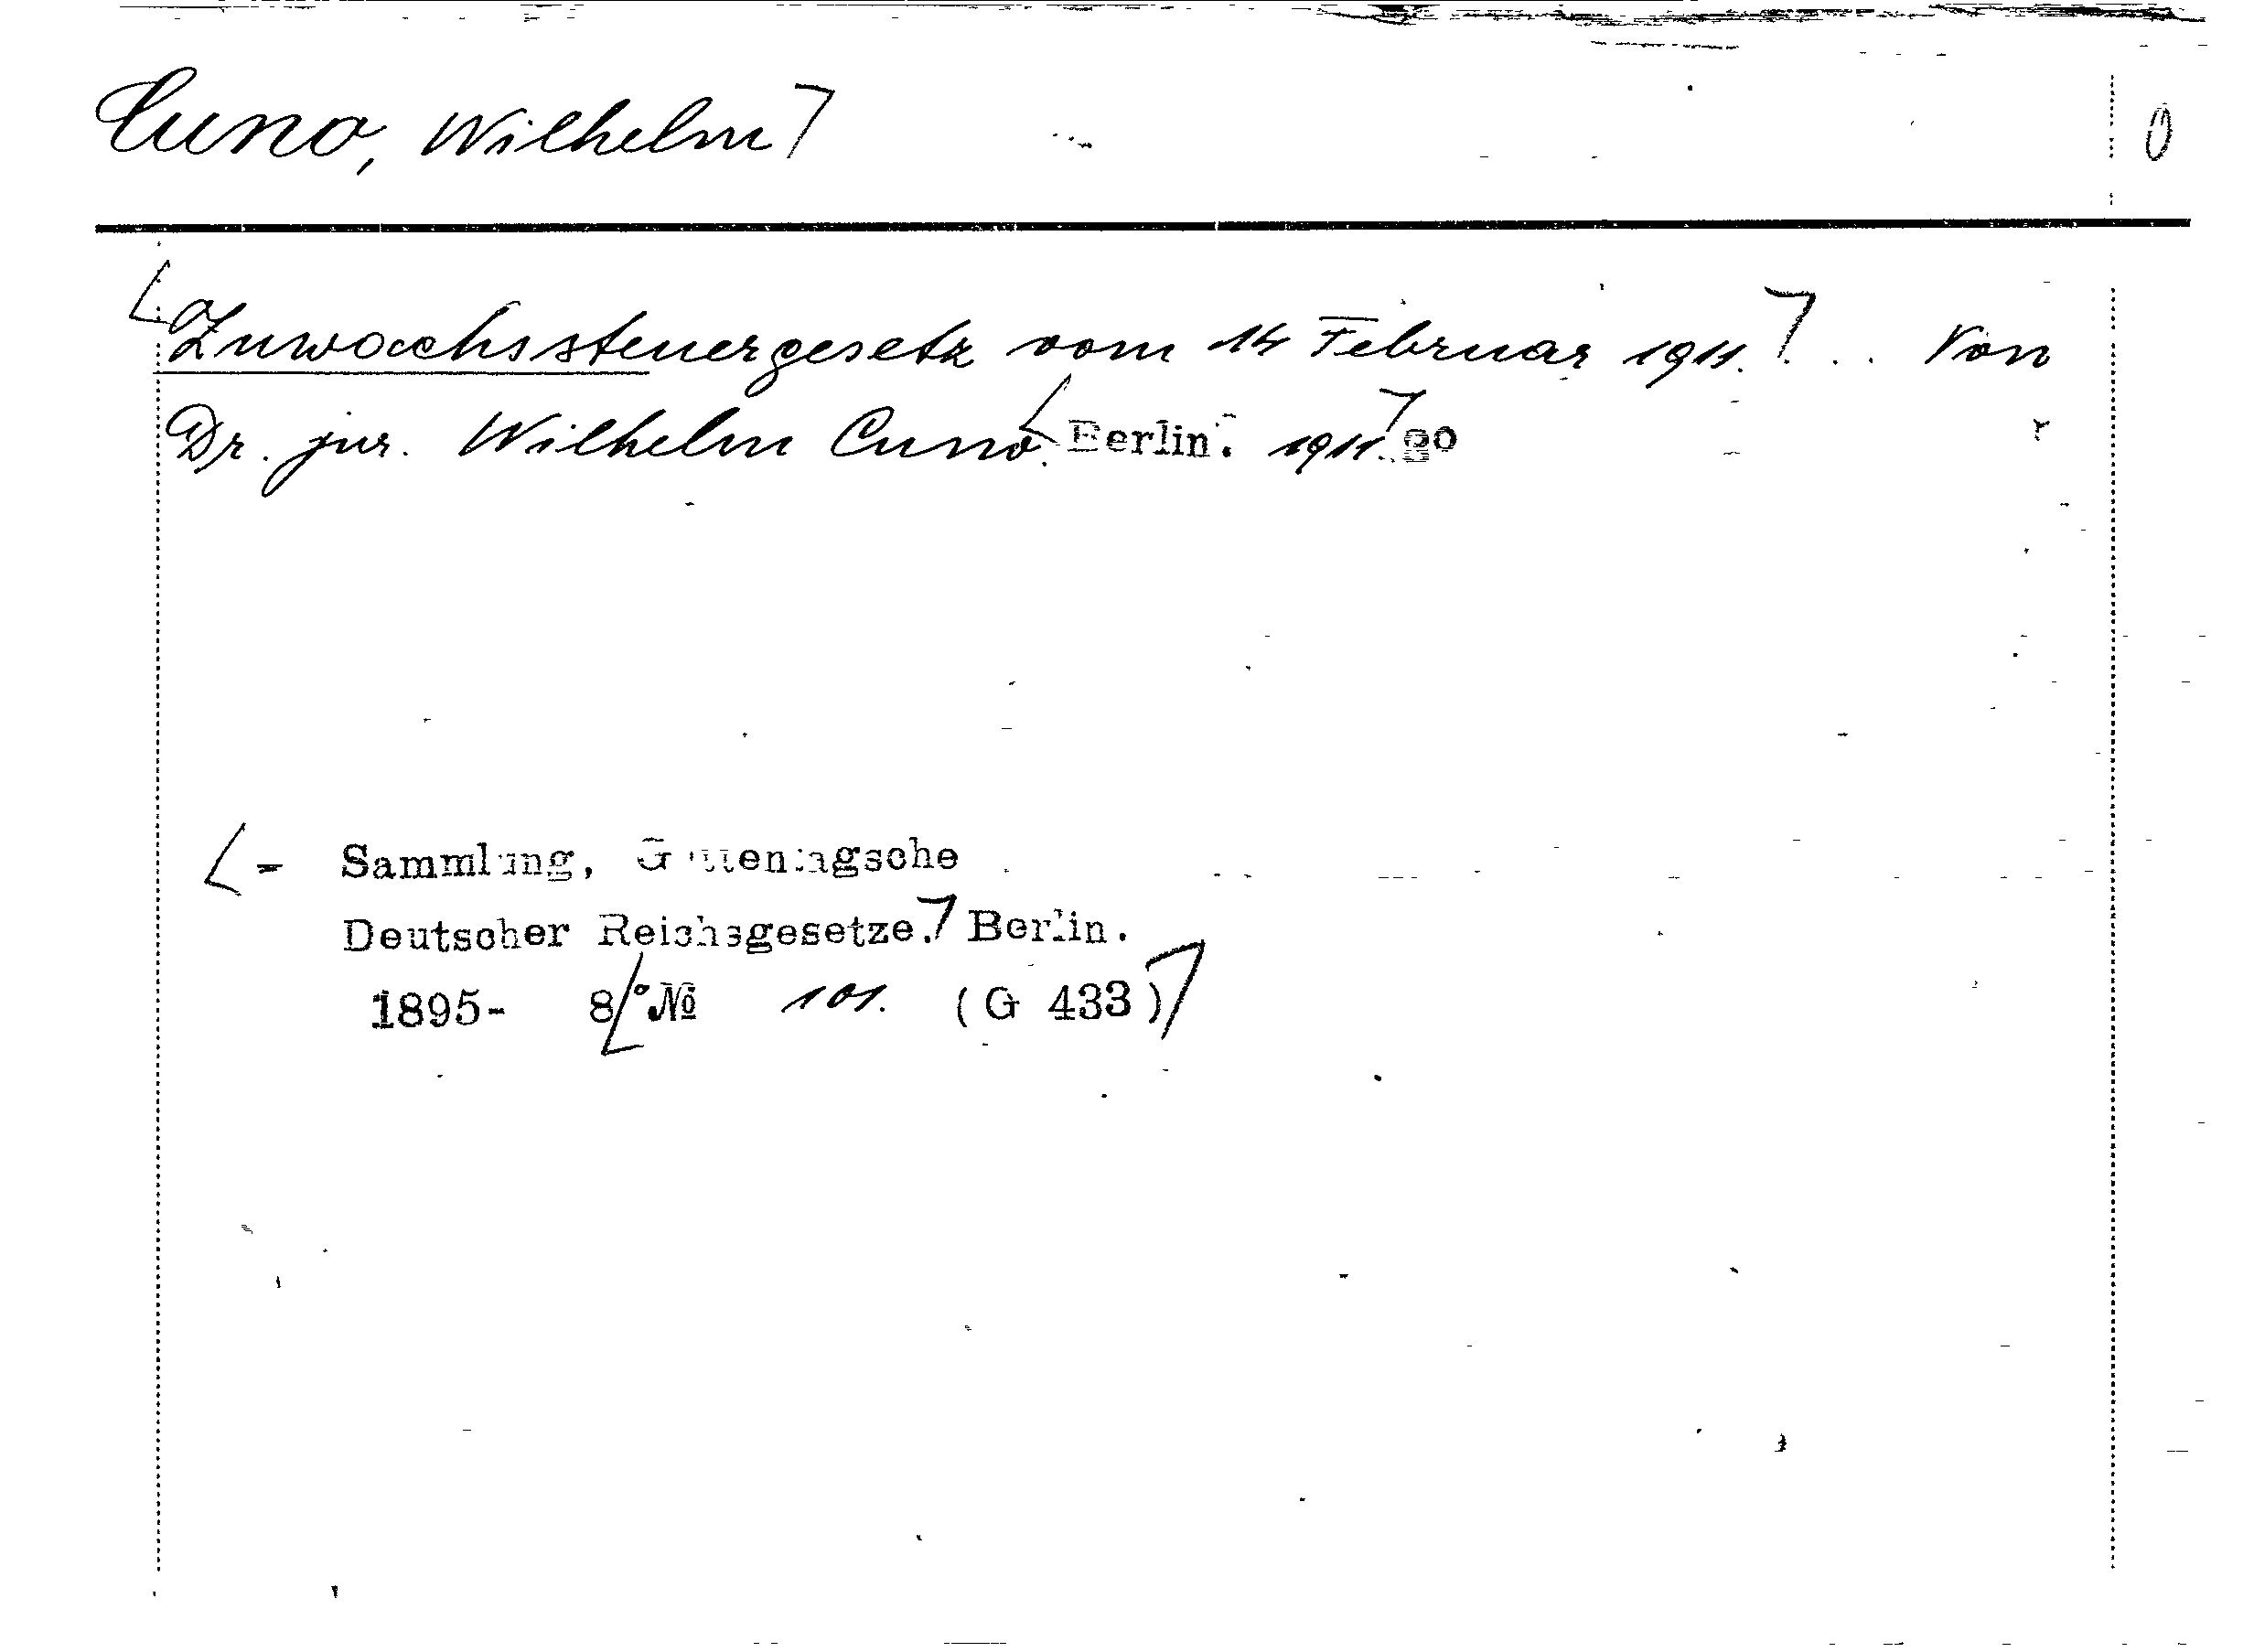 Cuno, Wilhelm 0
Zuwachssteuergesetz vom 14 Februar 1911. . . Von
Dr. jur. Wilhelm Cuno. Berlin. 1911. 8o
= Sammlung, Guttentagsche
Deutscher Reichsgesetze. Berlin.
1895- 8° № 101. (G 433)